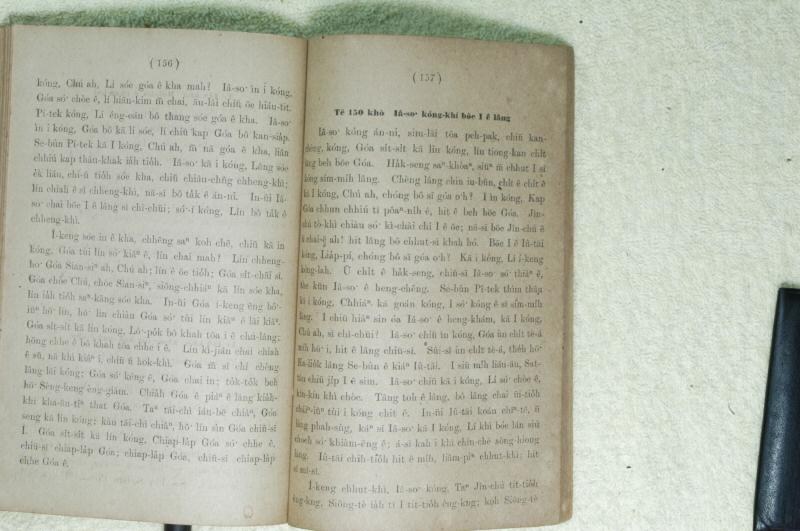 (156)
kóng, Chú ah, Lí sóe góa ê kha mah? Iâ-so͘ ìn i kóng,
Góa só͘ chòe ê, lí hiān-kim m̄ chai, āu-lâi chiū ōe hiáu-tit.
Pí-tek kóng, Lí éng-cán bô thang sóe góa ê kha. Iâ-so͘
ìn i kóng, Góa bô kā lí sóe, lí chiū kap Góa bô kan-sia̍p.
Se-bûn Pí-tek kā I kóng, Chú ah, m̄ nā góa ê kha, liân
chhiú kap thâu-khak ia̍h tio̍h. Iâ-so͘ kā i kóng, Lâng sóe
e̍k liáu, chí-ū tio̍h sóe kha, chiū chiâu-chn̂g chheng-khì;
lín chiah ê sī chheng-khì, nā-sī bô ta̍k ê án-ni. In-ūi Iâ-
so͘ chai bōe I ê lâng sī chī-chūi; só͘-í kóng, Lín bô ta̍k ê
chheng-khì.
Í-keng sóe in ê kha, chhēng saⁿ koh chē, chiū kā in
kóng, Góa tùi lín só͘ kiâⁿ ê, lín chai mah? Lín chheng-
ho͘ Góa Sian-siⁿ ah, Chú ah; lín ê ōe tio̍h; Góa si̍t-chāi sī.
Góa chòe Chú, chòe Sian-siⁿ, siōng-chhiáⁿ kā lín sóe kha,
lín ia̍h tio̍h saⁿ-kāng sóe kha. In-ūi Góa í-keng ēng bô-
iūⁿ hō͘ lín, hō͘ lín chiàu Góa só͘ tùi lín kiâⁿ ê lâi kiâⁿ.
Góa si̍t-si̍t kā lín kóng, Lô͘-po̍k bô khah tōa i ê chú-lâng;
hōng chhe ê bô khah tōa chhe i ê. Lín kì-jiân chai chiah
ê sū, nā khì kiâⁿ i, chiū ū hok-khì. Góa m̄ sī chí chèng
lâng lâi kóng; Góa só͘ kéng ê, Góa chai in; to̍k-to̍k beh
hō͘ Sèng-keng èng-giām. Chia̍h Góa ê piáⁿ ê lâng kia̍h-
khí kha-āu-tiⁿ that Góa. Taⁿ tāi-chì iáu-bē chiâⁿ, Góa
seng kā lín kóng; kàu tāi-chì chiâⁿ, hō͘ lín sìn Góa chiū-sī
I. Góa si̍t-si̍t kā lín kóng, Chiap-la̍p Góa só͘ chhe ê,
chiū-sī chiap-la̍p Góa; chiap-la̍p Góa, chiū-sī chiap-la̍p
chhe Góa ê.
(157)
Tē 150 khò Iâ-so͘ kóng-khí bōe I ê lâng
Iâ-so͘ kóng án-ni, sim-lāi tōa peh-pak, chiū kan-
chèng, kóng, Góa si̍t-si̍t kā lín kóng, lín tiong-kan chi̍t
lâng beh bōe Góa. Ha̍k-seng saⁿ-khòaⁿ, siūⁿ m̄ chhut I sī
kóng sím-mi̍h lâng. Chèng lâng chin iu-būn, chi̍t ê chi̍t ê
kā I kóng, Chú ah, chóng bô sī góa o͘h? I ìn kóng, Kap
Góa chhun chhiú tī pôaⁿ-nih ê, hit ê beh bōe Góa. Jîn-
chú tò-khì chiàu só͘ kì-chāi chí I ê ōe; nā-sī bōe Jîn-chú ê
ū chai-ē ah! hit lâng bô chhut-sì khah hó. Bōe I ê Iû-tāi
kóng, Lia̍p-pí, chóng bô sī góa o͘h? Kā i kóng, Lí í-keng
kóng-lah. Ū chi̍t ê ha̍k-seng, chiū-sī Iâ-so͘ só͘ thiàⁿ ê,
the kūn Iâ-so͘ ê heng-chêng. Se-bûn Pí-tek thìm thâu
kā i kóng, Chhiáⁿ kā goán kóng, I só͘ kóng ê sī sím-mi̍h
lâng. I chiū hiâⁿ sin óa Iâ-so͘ ê heng-khám, kā I kóng,
Chú ah, sī chī-chūi? Iâ-so͘ chiū ìn kóng, Góa ùn chi̍t tè-á
mi̍h hō͘ i, hit ê lâng chiū-sī. Sûi-sî ùn chi̍t tè-á, the̍h hō͘
Ka-lio̍k lâng Se-bûn ê kiáⁿ Iû-tāi. I siū mi̍h liáu-āu, Sat-
tàn chiū ji̍p I ê sim. Iâ-so͘ chiū kā i kóng, Lí só͘ chòe ê,
kín-kín khì chòe. Tâng toh ê lâng, bô lâng chai ūi-tio̍h
cháiⁿ-iūⁿ tùi i kóng chit ê. In-ūi Iû-tāi koán chîⁿ-tē, ū
lâng phah-sǹg, káⁿ sī Iâ-so͘ kā I kóng, Lí khì bóe lán siú
choeh só͘ khiàm-ēng ê; á-sī kah i khì chín-chè sòng-hiong
lâng. Iû-tāi chih-tio̍h hit ê mi̍h, liâm-piⁿ chhut-khì; hit
sî mî-sî.
Í-keng chhut-khì, Iâ-so͘ kóng, Taⁿ Jîn-chú tit-tio̍h
êng-kng, Siōng-tè ia̍h tī I tit-tio̍h êng-kng; koh Siōng-tè